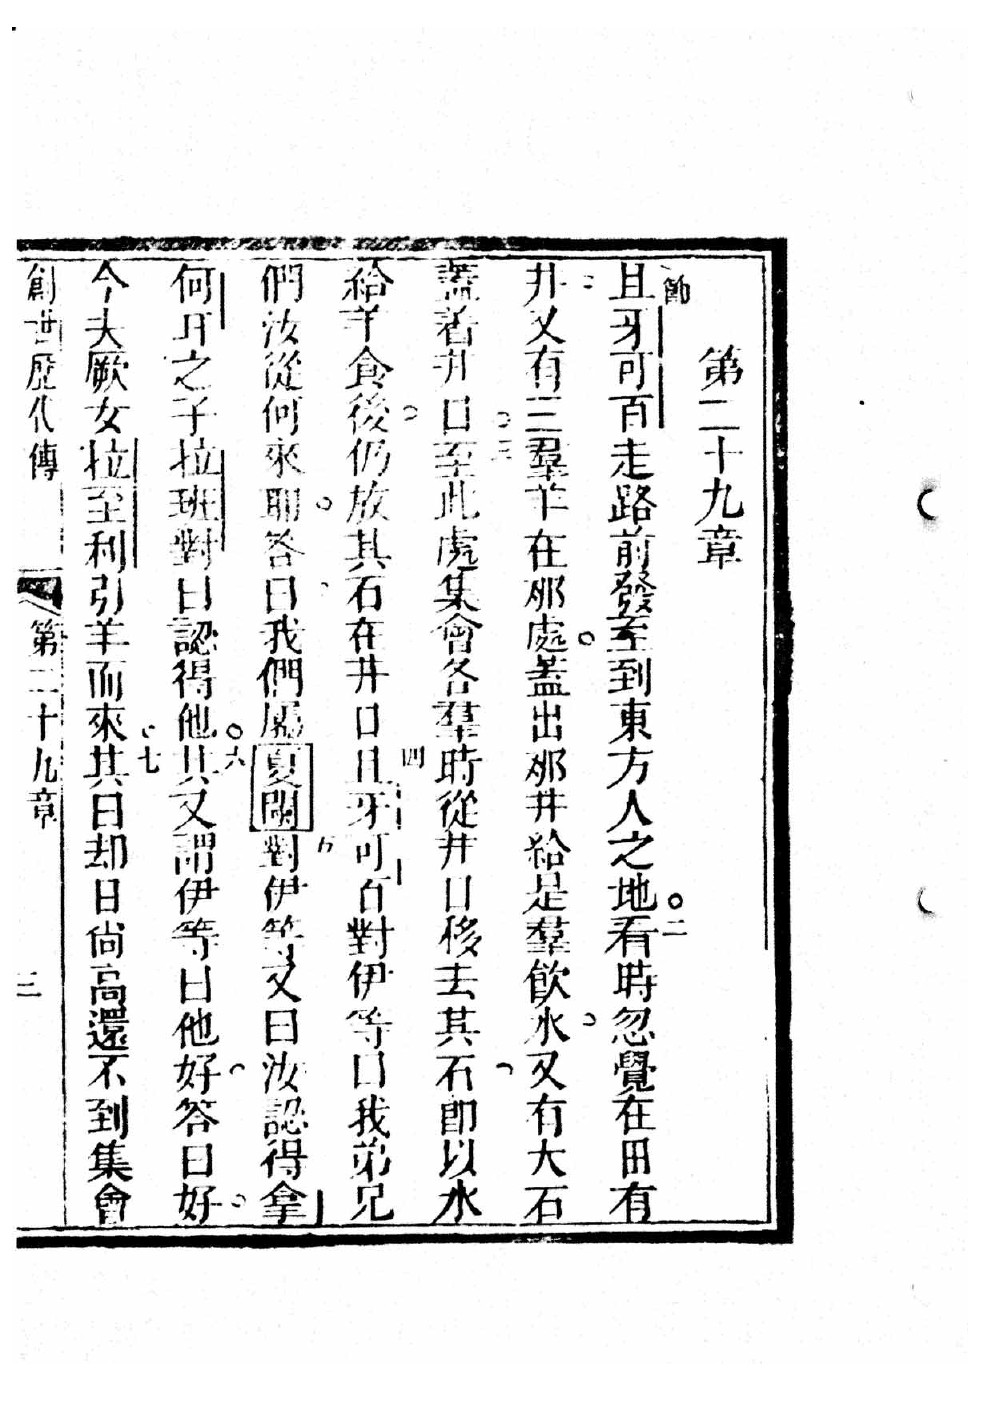 第二十九章
節
且牙可百走路前發至到東方人之地。二看時忽覺在田有
井。又有三羣羊在那處。蓋出那井給是羣飲水。又有大石
蓋着井口。三至此處集會各羣時從井口移去其石。即以水
給羊食後。仍放其石在井口。四且牙可百對伊等曰我弟兄
們汝從何來耶。答曰我們屬夏闌。五對伊等又曰汝認得拿
何耳之子拉班。對曰認得他。六其又謂伊等曰他好。答曰好。
今夫厥女拉至利引羊而來。七其曰却日尚高還不到集會
創世歷代傳 第二十九章 三